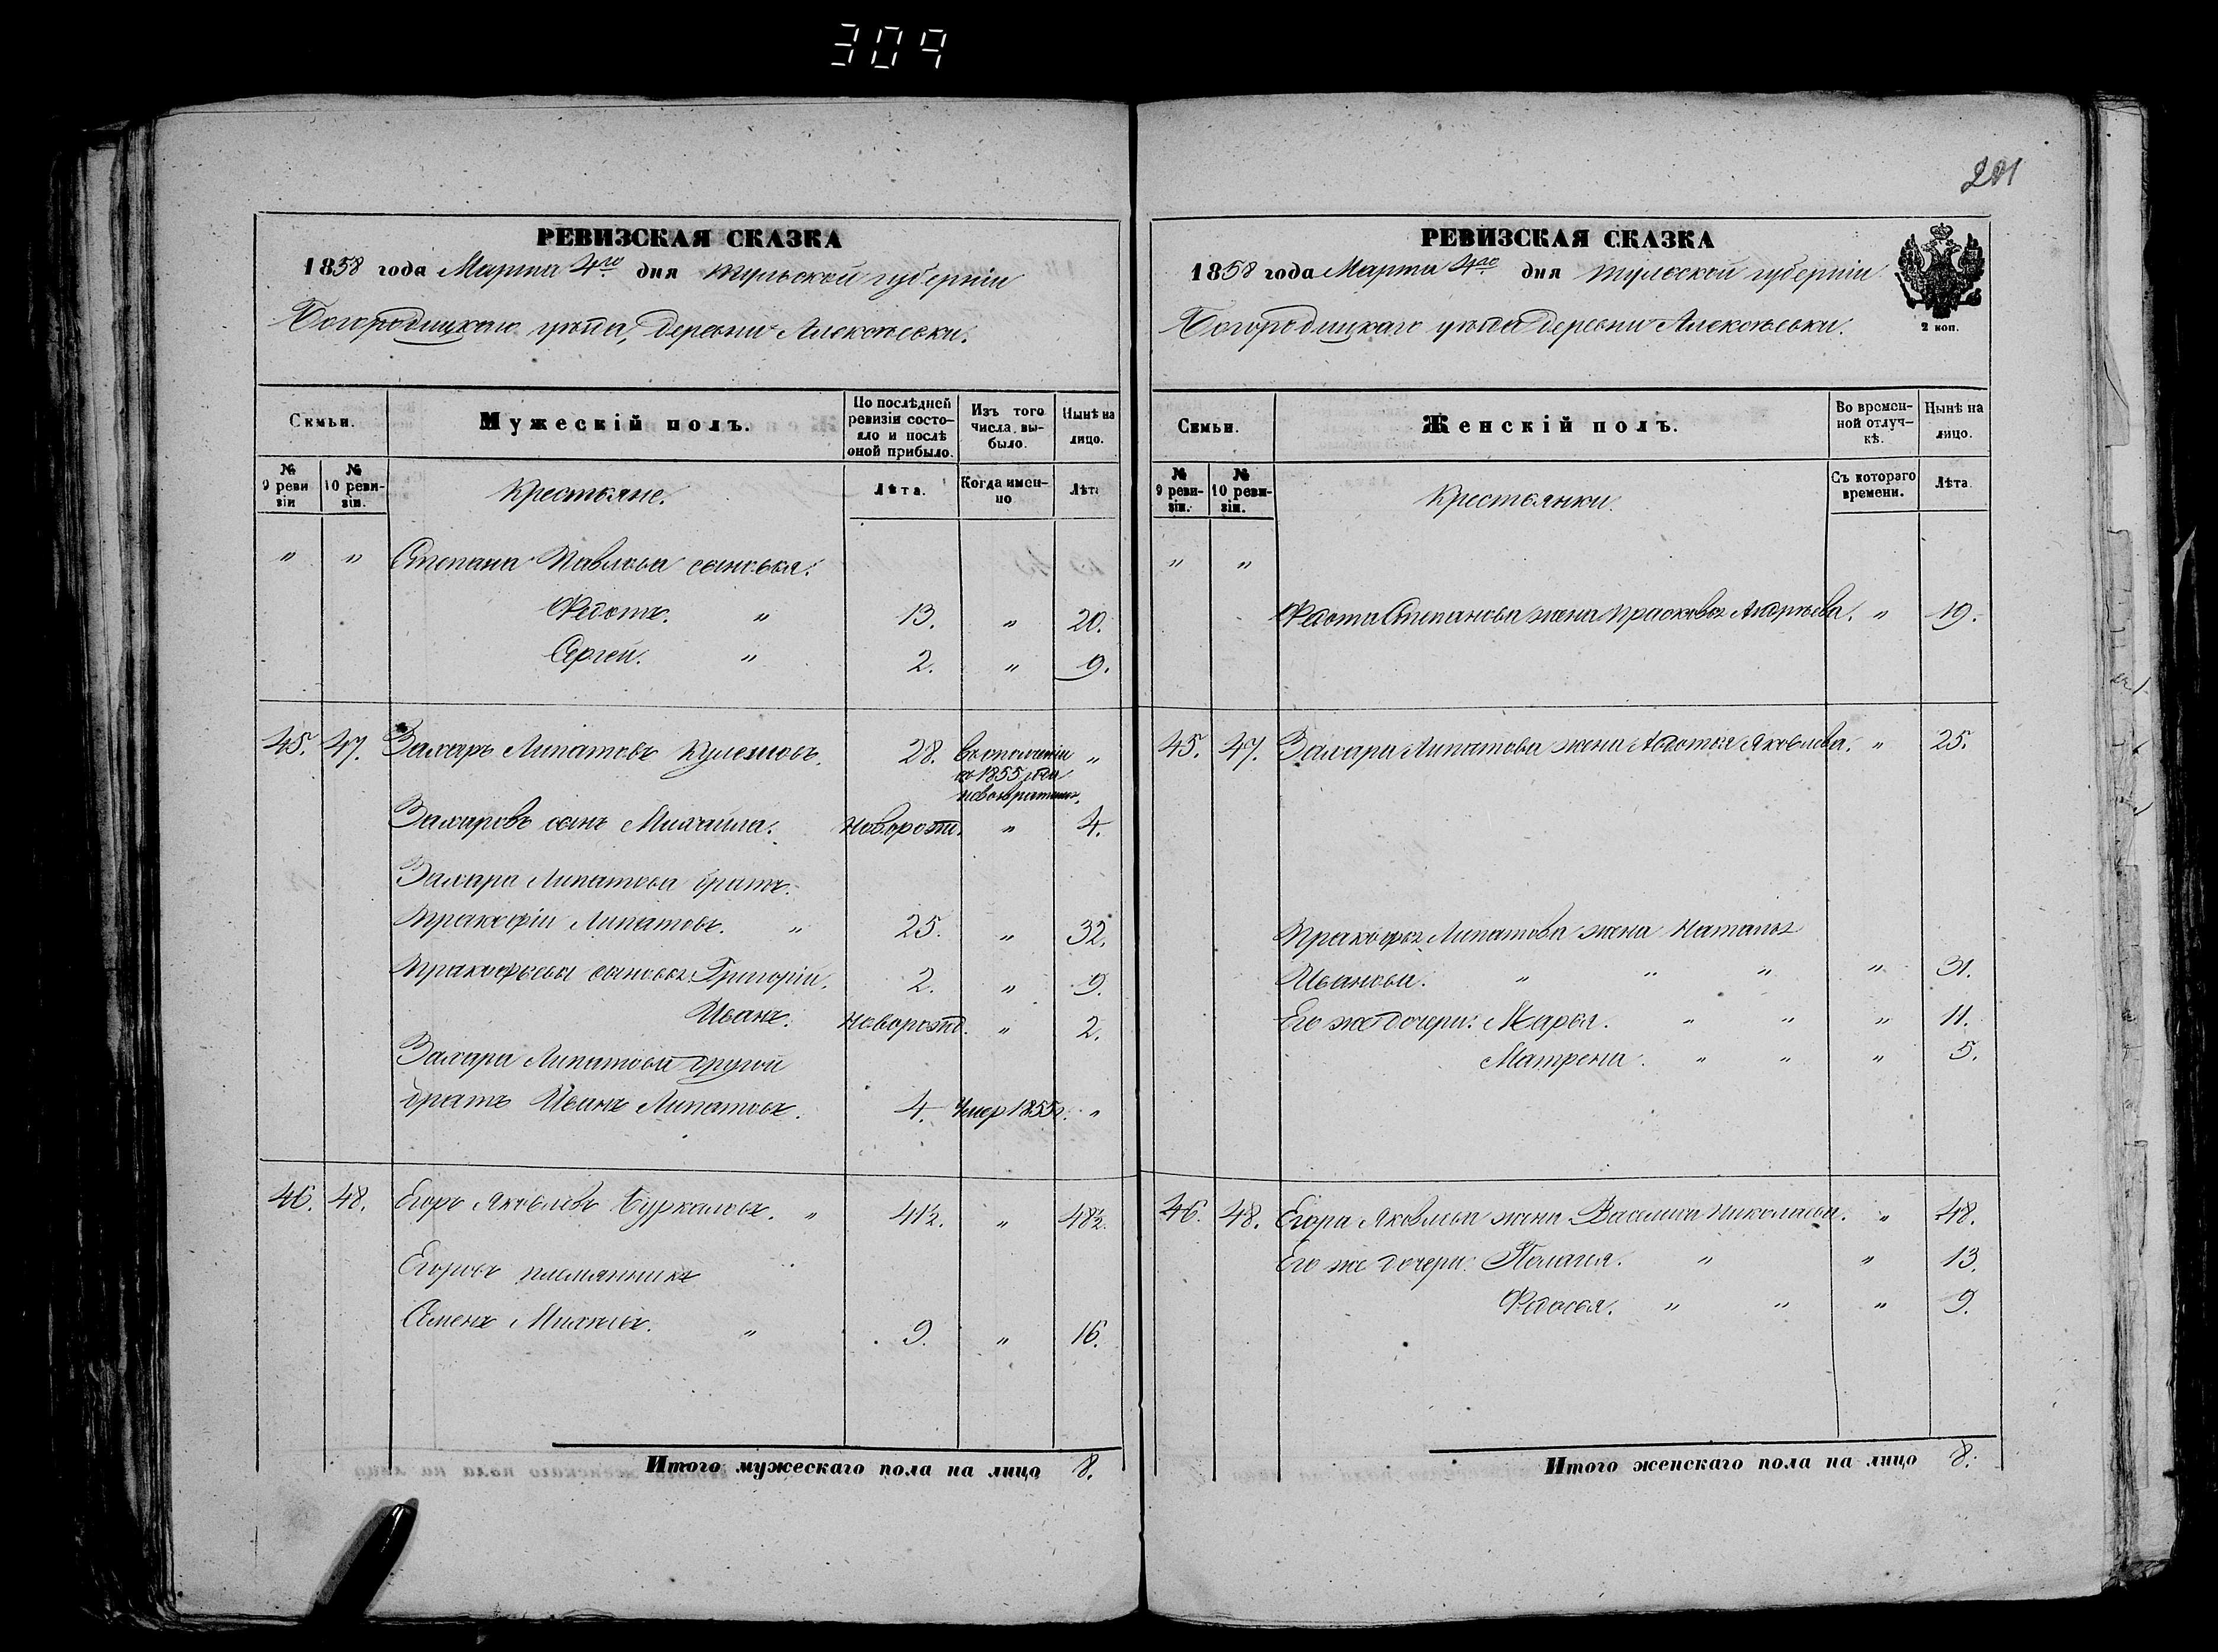 309
201
РЕВИЗСКАЯ СКАЗКА
1858 года Марта 4го дня Тульской губерніи
Богородицкаго уѣзда, деревни Алексѣевки.
Семьи.
Мужескій полъ.
По послѣдней ревизіи состояло и послѣ оной прибыло.
Изъ того числа выбыло.
Нынѣ на лицо.
№ 9 ревизіи
№ 10 ревизіи.
Крестьяне.
Лѣта.
Когда именно
Лѣта
" " Степана Павлова сыновья:
Федотъ. " 13. " 20.
Сергей. " 2. " 9.
45. 47. Захаръ Липатовъ Кулешовъ. 28. въ ополченіи "
съ 1855 года
невозвратился.
Захаровъ сынъ Михайла. новорожд. " 4.
Захара Липатова братъ.
Пракофій Липатовъ. " 25. " 32.
Пракофьевы сыновья: Григорій. 2. " 9.
Иванъ. новорожд. " 2.
Захара Липатова другой
братъ Иванъ Липатовъ. 4. умер 1855г. "
46. 48. Егоръ Яковлевъ Буркаловъ. " 41½. " 48½.
Егоровъ племянникъ
Семенъ Михѣевъ. " 9. " 16.
Итого мужескаго пола на лицо 8.
РЕВИЗСКАЯ СКАЗКА
1858 года Марта 4го дня Тульской губерніи
Богородицкаго уѣзда деревни Алексѣевки.
2 коп.
Семьи.
Женскій полъ.
Во временной отлучкѣ.
Нынѣ на лицо.
№ 9 ревизіи.
№ 10 ревизіи.
Крестьянки.
Съ котораго времени.
Лѣта.
" "
Федота Степанова жена Прасковья Андреева. " 19.
45. 47. Захара Липатова жена Авдотья Яковлева. " 25.
Пракофья Липатова жена Наталья
Иванова. " " " " 31.
Его же дочери: Марья. " " " 11.
Матрена. " " " 5.
46. 48. Егора Яковлева жена Василиса Николаева. " 48.
Его же дочери: Пелагея. " " 13.
Федосья. " " " 9.
Итого женскаго пола на лицо 8.